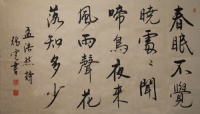 春眠不覺
曉處々聞
啼鳥夜來
風雨聲花
落知多少
孟浩然詩
書